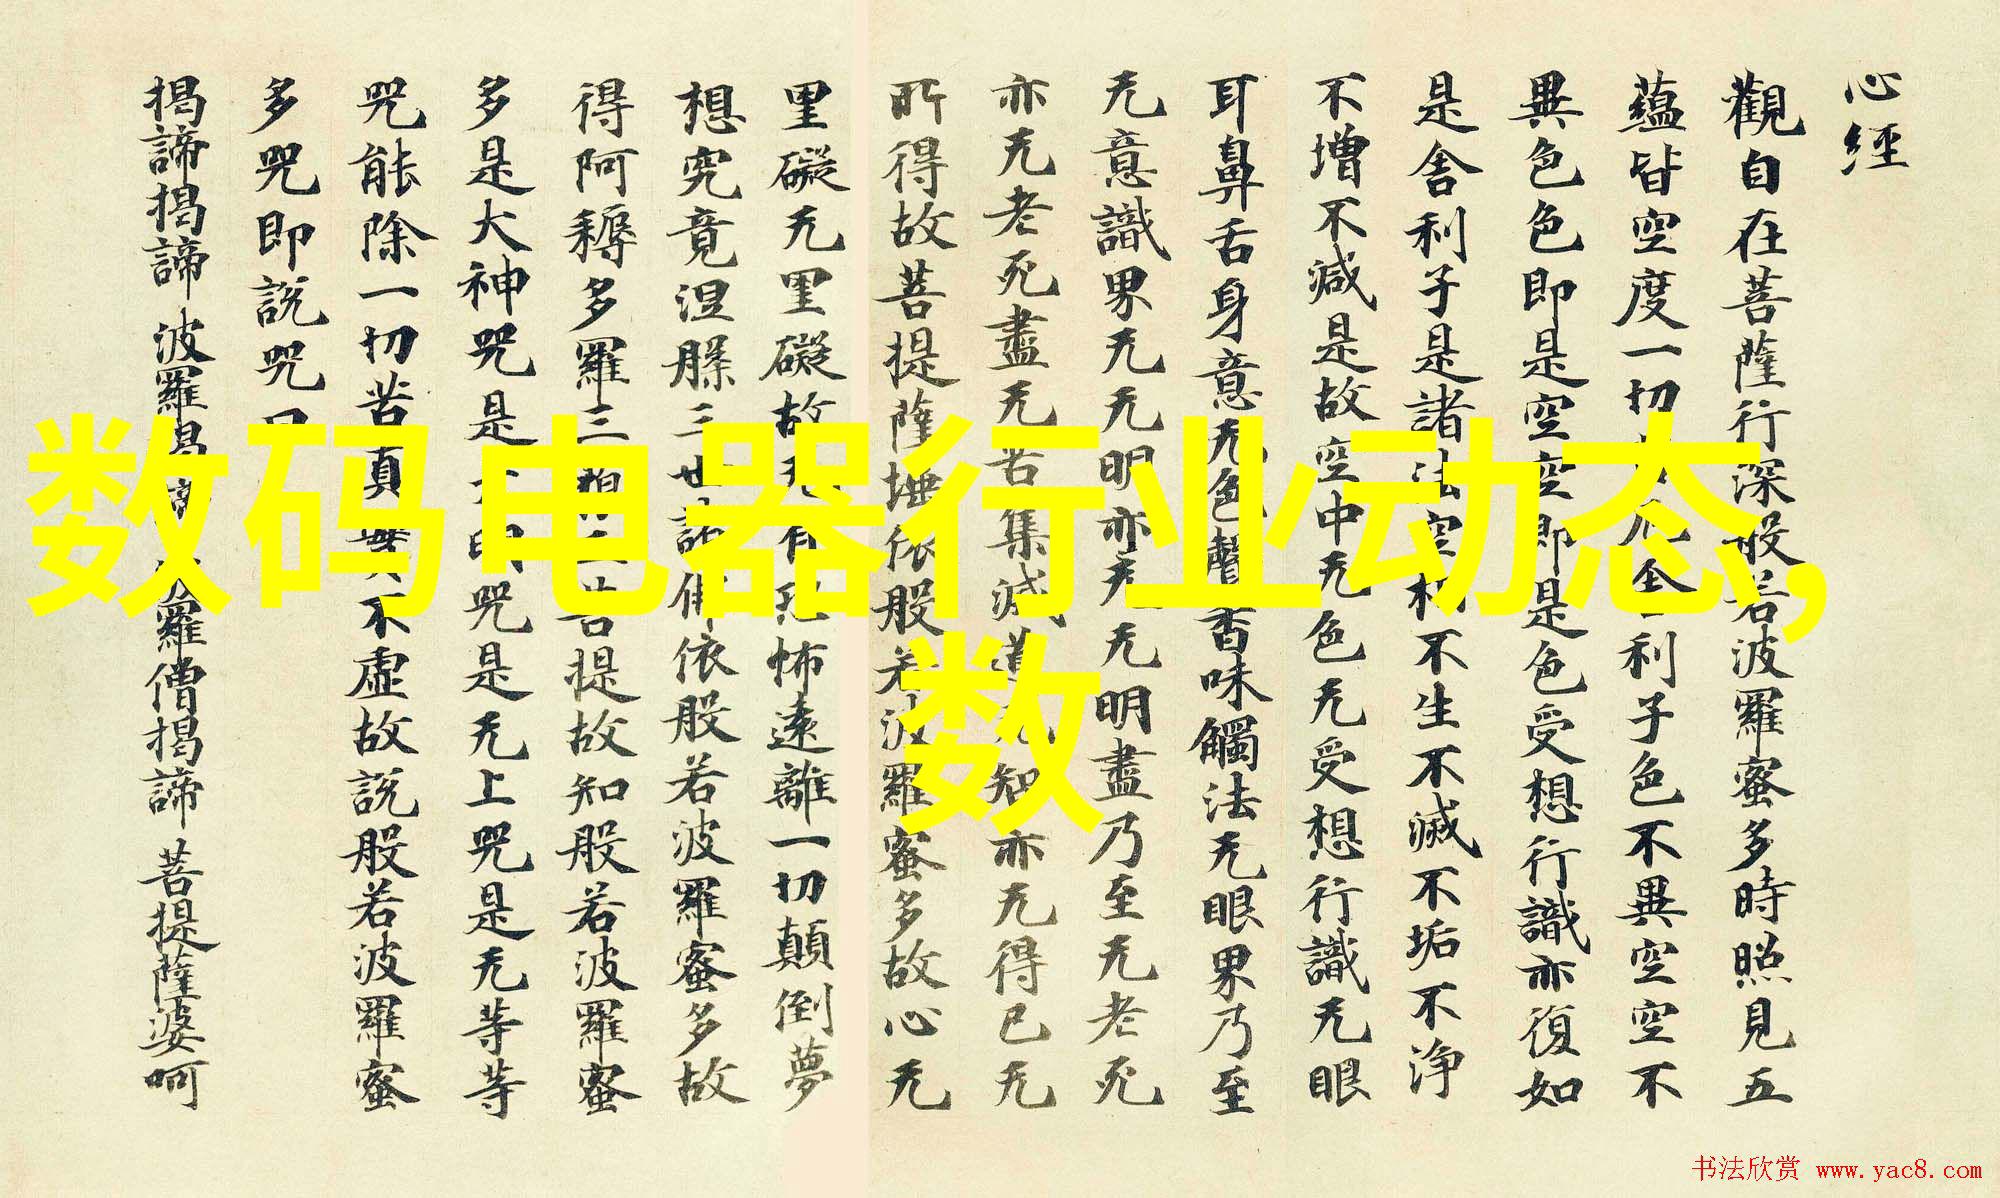 心經
觀自在菩薩行深般若波羅蜜多時照見五
蘊皆空度一切
利子色不異空空不
異色色即是空空即是色受想行識亦復如
是舍利子是諸法空相不生不滅不垢不净
不增不減是故空中无色无受想行識无眼
耳鼻舌身意无色聲香味觸法无眼界乃至
无意識界无无明亦无无明盡乃至无老死
亦无老死盡无苦集滅道无智亦无得已无
所得故菩提薩埵依般若波羅蜜多故心无
罣礙无罣礙故无有恐怖遠離一切顛倒夢
想究竟涅槃三世諸佛依般若波羅蜜多故
得阿耨多羅三藐三菩提故知般若波羅蜜
多是大神咒是大明咒是无上咒是无等等
咒能除一切苦真實不虛故說般若波羅蜜
多咒即說咒曰
揭諦揭諦 波羅揭諦
羅僧揭諦 菩提薩婆呵
数码电器行业动态,
数
书法欣赏 www.yac8.com